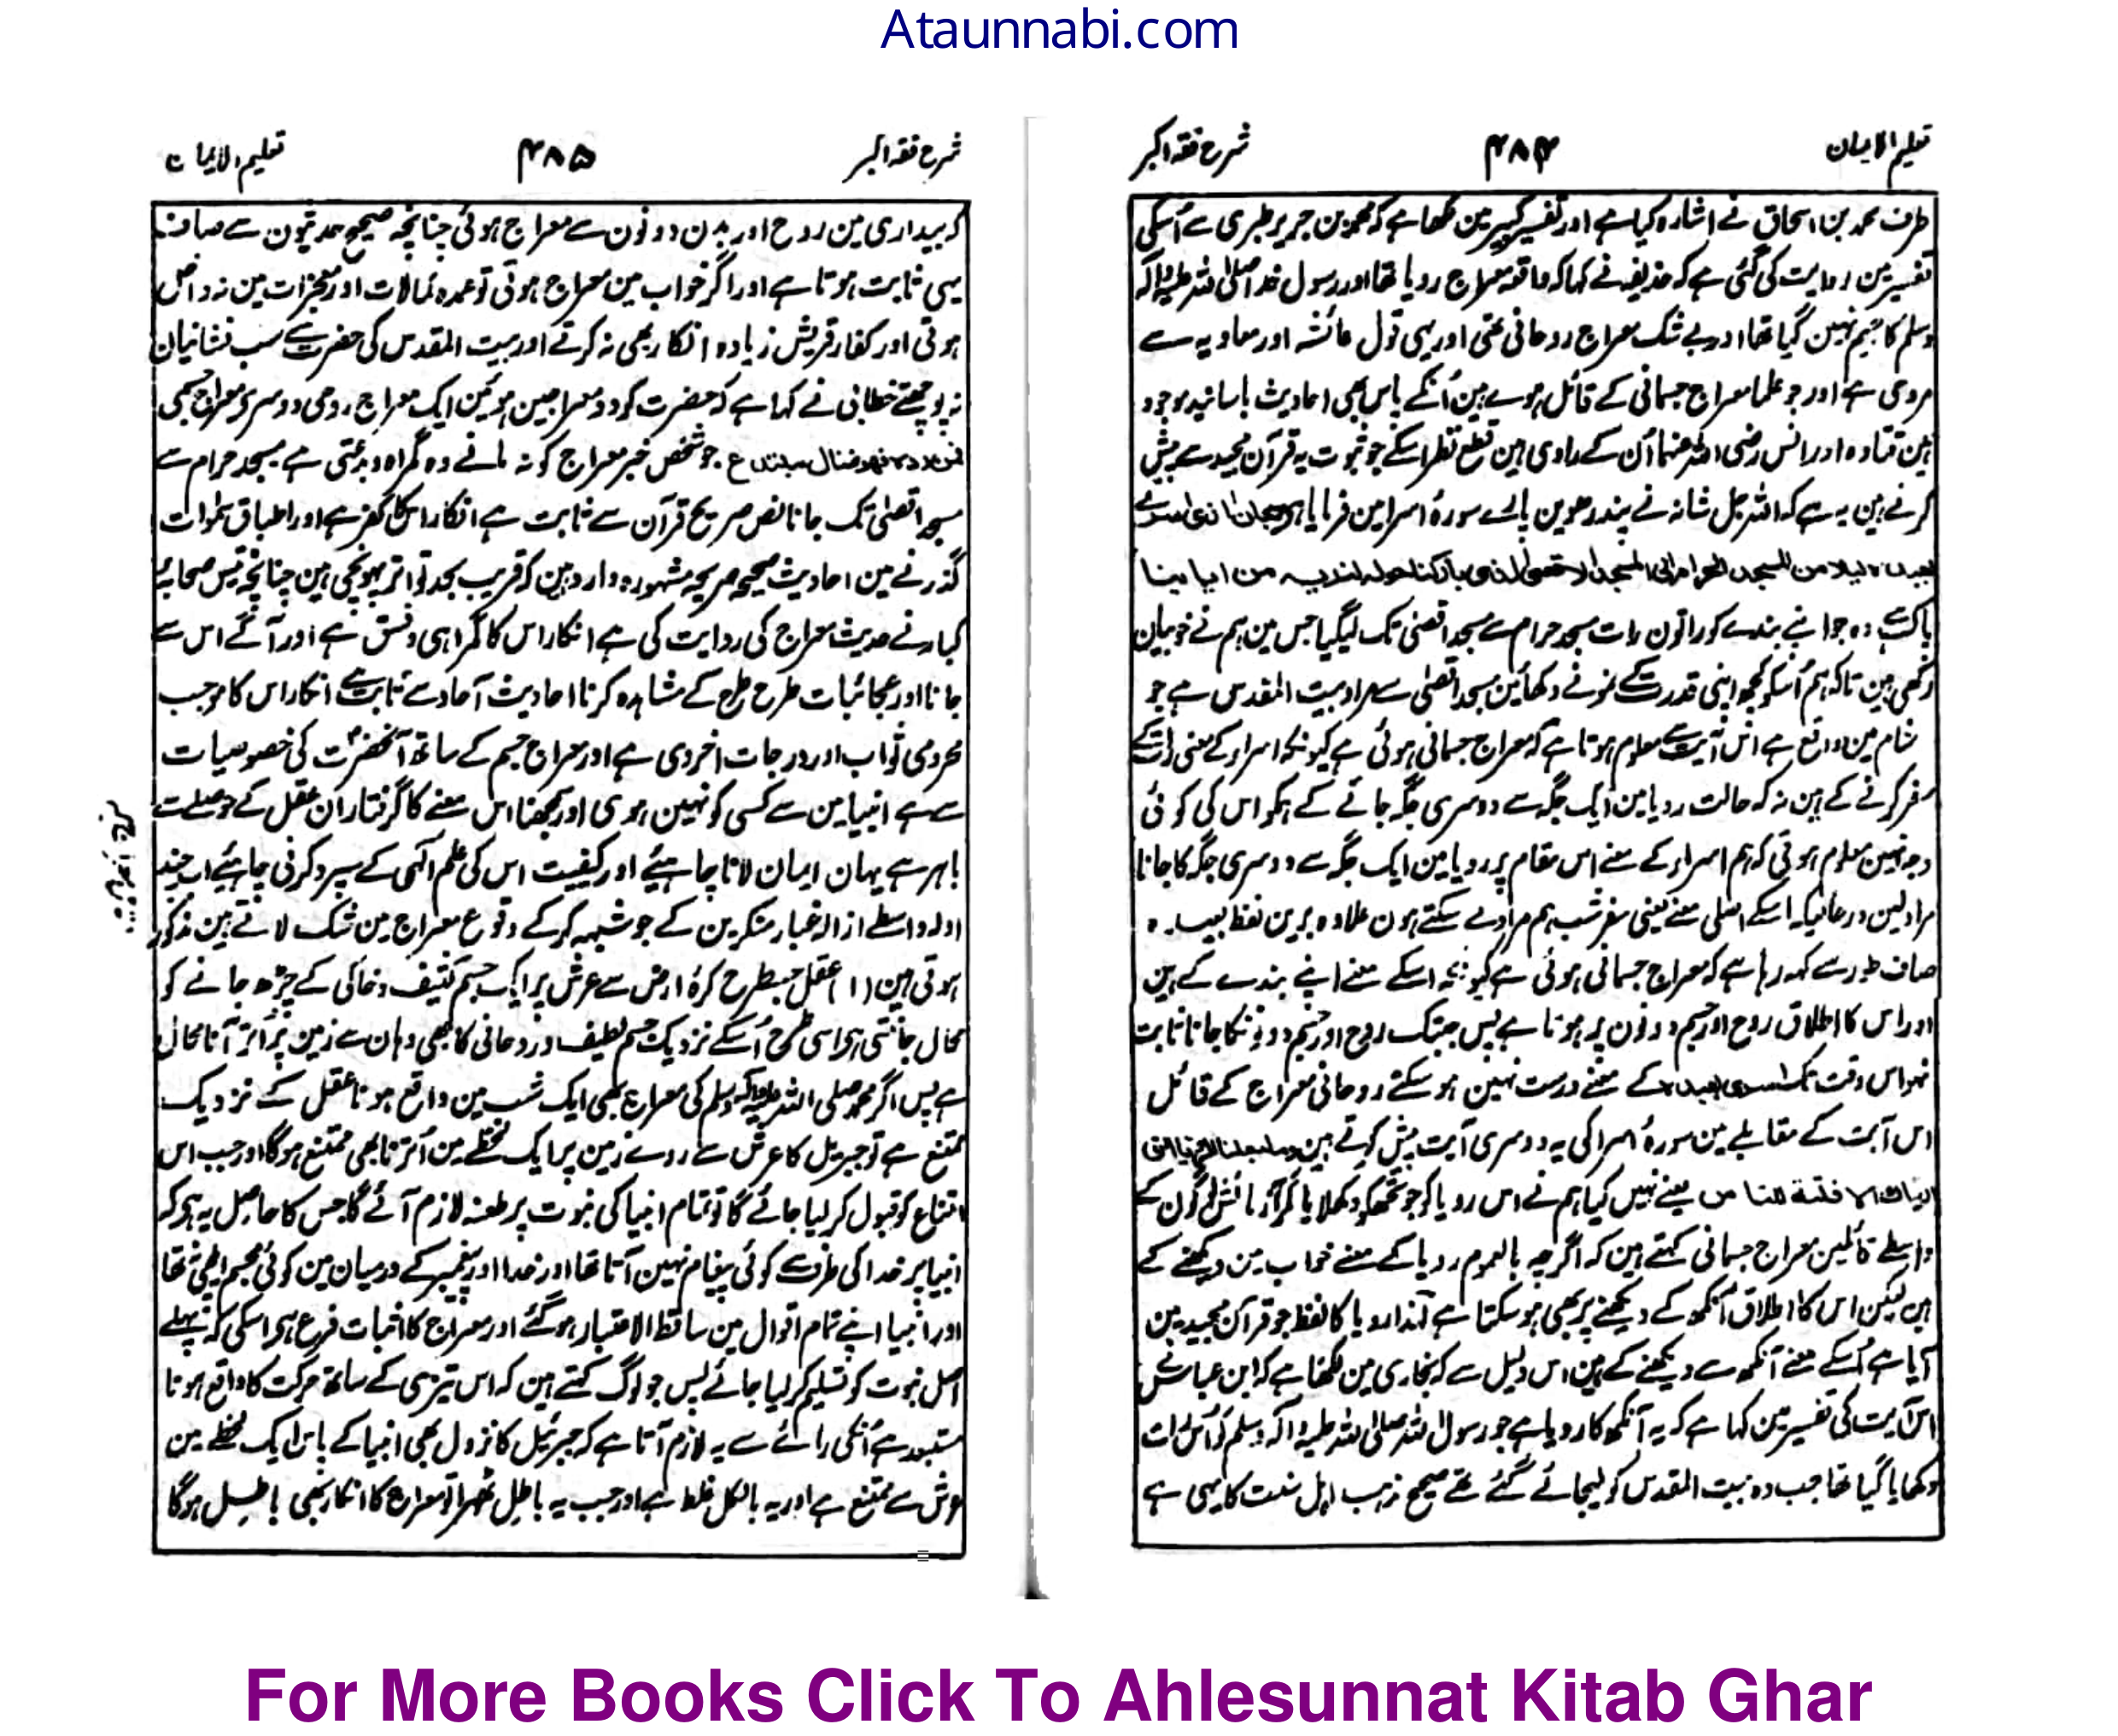 Ataunnabi.com
تعلیم الایمان ۴۸۴ شرح فقہ اکبر
طرف محمد بن اسحاق نے اشارہ کیا ہے اور تفسیر کبیر مین لکھا ہے کہ محمد بن جریر طبری سے اُسکی
تفسیر مین روایت کی گئی ہے کہ حذیفہ نے کہا کہ واقعہ معراج رویا تھا اور رسول خدا صلی اللہ علیہ وآلہ
وسلم کا جسم نہین گیا تھا اور بے شک معراج روحانی تھی اور یہی قول عائشہ اور معاویہ سے
مروی ہے اور جو علما معراج جسمانی کے قائل ہوے ہین اُنکے پاس بھی احادیث باسانید موجود
ہین قتادہ اور انس رضی اللہ عنہما اُن کے راوی ہین قطع نظر اسکے جو ثبوت یہ قرآن مجید سے پیش
کرتے ہین یہ ہے کہ اللہ جل شانہ نے پندرھوین پارے سورۂ اسرا مین فرمایا ہے سبحان الذی اسرے
بعبدہ لیلا من المسجد الحرام الی المسجد الاقصی الذی بارکنا حولہ لنریہ من ایاتنا
پاک ہے وہ جو اپنے بندے کو راتون رات مسجد حرام سے مسجد اقصیٰ تک لیگیا جس مین ہم نے خوبیان
رکھی ہین تاکہ ہم اُسکو کچھ اپنی قدرت کے نمونے دکھائین مسجد اقصیٰ سے مراد بیت المقدس ہے جو
شام مین واقع ہے اس آیت سے معلوم ہوتا ہے کہ معراج جسمانی ہوئی ہے کیونکہ اسراء کے معنی رات کے
سفر کرنے کے ہین نہ کہ حالت رویا مین ایک جگہ سے دوسری جگہ جانے کے ہمکو اس کی کوئی
وجہ نہین معلوم ہوتی کہ ہم اسراء کے معنے اس مقام پر رویا مین ایک جگہ سے دوسری جگہ کا جانا
مراد لین درحالیکہ اسکے اصلی معنے یعنی سفر شب ہم مراد لے سکتے ہون علاوہ برین لفظ بعبدہ
صاف طور سے کہہ رہا ہے کہ معراج جسمانی ہوئی ہے کیونکہ اسکے معنے اپنے بندے کے ہین
اور اس کا اطلاق روح اور جسم دونون پر ہوتا ہے پس جبتک روح اور جسم دونونکا جانا ثابت
نہو اس وقت تک اسری بعبدہ کے معنے درست نہین ہو سکتے روحانی معراج کے قائل
اس آیت کے مقابلے مین سورۂ اسرا کی یہ دوسری آیت پیش کرتے ہین وما جعلنا الرؤیا التی
اریناک الا فتنة للناس یعنے نہیں کیا ہم نے اس رویا کو جو تجھکو دکھلایا مگر آزمائش لوگون کے
واسطے قائلین معراج جسمانی کہتے ہین کہ اگرچہ بالعموم رویا کے معنے خواب مین دیکھنے کے
ہین لیکن اس کا اطلاق آنکھ کے دیکھنے پر بھی ہو سکتا ہے لہذا رویا کا لفظ جو قرآن مجید مین
آیا ہے اُسکے معنے آنکھ سے دیکھنے کے ہین اس دلیل سے کہ بخاری مین لکھا ہے کہ ابن عباس نے
اس آیت کی تفسیر مین کہا ہے کہ یہ آنکھ کا رویا ہے جو رسول اللہ صلی اللہ علیہ وآلہ وسلم کو اُس رات
دکھایا گیا تھا جب وہ بیت المقدس کو لیجائے گئے تھے صحیح مذہب اہل سنت کا یہی ہے
شرح فقہ اکبر ۴۸۵ تعلیم الایمان
کہ بیداری مین روح اور بدن دونون سے معراج ہوئی چنانچہ صحیح حدیثون سے صاف
یہی ثابت ہوتا ہے اور اگر خواب مین معراج ہوتی تو عمدہ کمالات اور معجزات مین نہ داخل
ہوتی اور کفار قریش زیادہ انکار بھی نہ کرتے اور بیت المقدس کی حضرت سے سب نشانیان
نہ پوچھتے خطابی نے کہا ہے کہ حضرت کو دو معراجین ہوئین ایک معراج روحی دوسری معراج جسمی
فمن ردہ فهو ضال مبتدع جو شخص خبر معراج کو نہ مانے وہ گمراہ و بدعتی ہے مسجد حرام سے
مسجد اقصیٰ تک جانا نص صریح قرآن سے ثابت ہے انکار اس کا کفر ہے اور اطباق سموات
گذرنے مین احادیث صحیحہ صریحہ مشہورہ وارد ہین کہ قریب بحد تواتر پہونچی ہین چنانچہ تیس صحابۂ
کبار نے حدیث معراج کی روایت کی ہے انکار اس کا گمراہی و فسق ہے اور آگے اس سے
جانا اور عجائبات طرح طرح کے مشاہدہ کرنا احادیث آحاد سے ثابت ہے انکار اس کا موجب
محرومی ثواب اور درجات اخروی ہے اور معراج جسم کے ساتھ آنحضرت کی خصوصیات
سے ہے انبیا مین سے کسی کو نہین ہوی اور سمجھنا اس معنے کا گرفتاران عقل کے حوصلے سے
باہر ہے یہان ایمان لانا چاہیئے اور کیفیت اس کی علم الٰہی کے سپرد کرنی چاہیئے اب چند
ادلہ واسطے ازالہ غبار منکرین کے جو شبہہ کر کے وقوع معراج مین شک لاتے ہین مذکور
ہوتی ہین (۱) عقل جسطرح کرۂ ارض سے عرش پر ایک جسم کثیف و خاکی کے چڑھ جانے کو
محال جانتی ہے اسی طرح اُسکے نزدیک جسم لطیف و روحانی کا بھی وہان سے زمین پر اُتر آنا محال
ہے پس اگر محمد صلی اللہ علیہ وآلہ وسلم کی معراج بھی ایک شب مین واقع ہونا عقل کے نزدیک
ممتنع ہے تو جبریل کا عرش سے روے زمین پر ایک لحظے مین اُترنا بھی ممتنع ہوگا اور جب اس
امتناع کو قبول کر لیا جائے گا تو تمام انبیا کی نبوت پر طعنہ لازم آئے گا جس کا حاصل یہ ہے کہ
انبیا پر خدا کی طرف سے کوئی پیغام نہین آتا تھا اور خدا اور پیغمبر کے درمیان مین کوئی
اور انبیا اپنے تمام اقوال مین ساقط الاعتبار ہو گئے اور معراج کا اثبات فرع ہے اسکی کہ پہلے
اصل نبوت کو تسلیم کر لیا جائے پس جو لوگ کہتے ہین کہ اس تیزی کے ساتھ حرکت کا واقع ہونا
مستبعد ہے اُنکی رائے سے یہ لازم آتا ہے کہ جبرئیل کا نزول بھی انبیا کے پاس ایک لحظے مین
عرش سے ممتنع ہے اور یہ بالکل غلط ہے اور جب یہ باطل ٹھہرا تو معراج کا انکار بھی باطل ہوگا
For More Books Click To Ahlesunnat Kitab Ghar